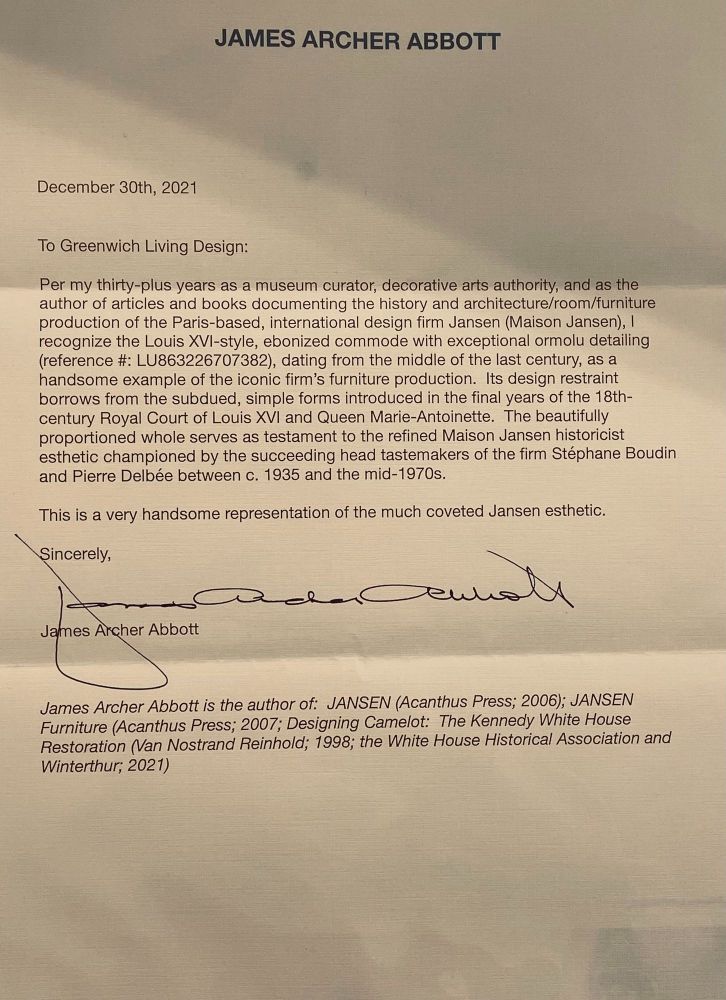 JAMES ARCHER ABBOTT
December 30th, 2021
To Greenwich Living Design:
Per my thirty-plus years as a museum curator, decorative arts authority, and as the
author of articles and books documenting the history and architecture/room/furniture
production of the Paris-based, international design firm Jansen (Maison Jansen), I
recognize the Louis XVI-style, ebonized commode with exceptional ormolu detailing
(reference #: LU863226707382), dating from the middle of the last century, as a
handsome example of the iconic firm's furniture production.  Its design restraint
borrows from the subdued, simple forms introduced in the final years of the 18th-
century Royal Court of Louis XVI and Queen Marie-Antoinette.  The beautifully
proportioned whole serves as testament to the refined Maison Jansen historicist
esthetic championed by the succeeding head tastemakers of the firm Stéphane Boudin
and Pierre Delbée between c. 1935 and the mid-1970s.
This is a very handsome representation of the much coveted Jansen esthetic.
Sincerely,
James Archer Abbott
James Archer Abbott
James Archer Abbott is the author of:  JANSEN (Acanthus Press; 2006); JANSEN
Furniture (Acanthus Press; 2007; Designing Camelot:  The Kennedy White House
Restoration (Van Nostrand Reinhold; 1998; the White House Historical Association and
Winterthur; 2021)